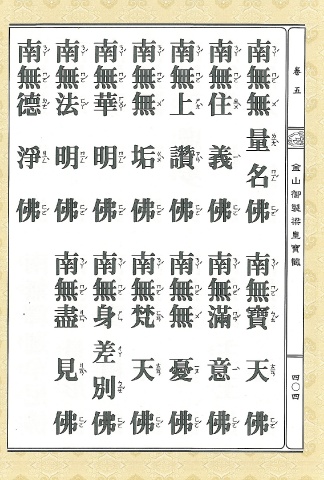 卷五
金山御製梁皇寶懺
四〇四
南無無量名佛 南無寶天佛
南無住義佛 南無滿意佛
南無上讚佛 南無無憂佛
南無無垢佛 南無梵天佛
南無華明佛 南無身差別佛
南無法明佛 南無盡見佛
南無德淨佛